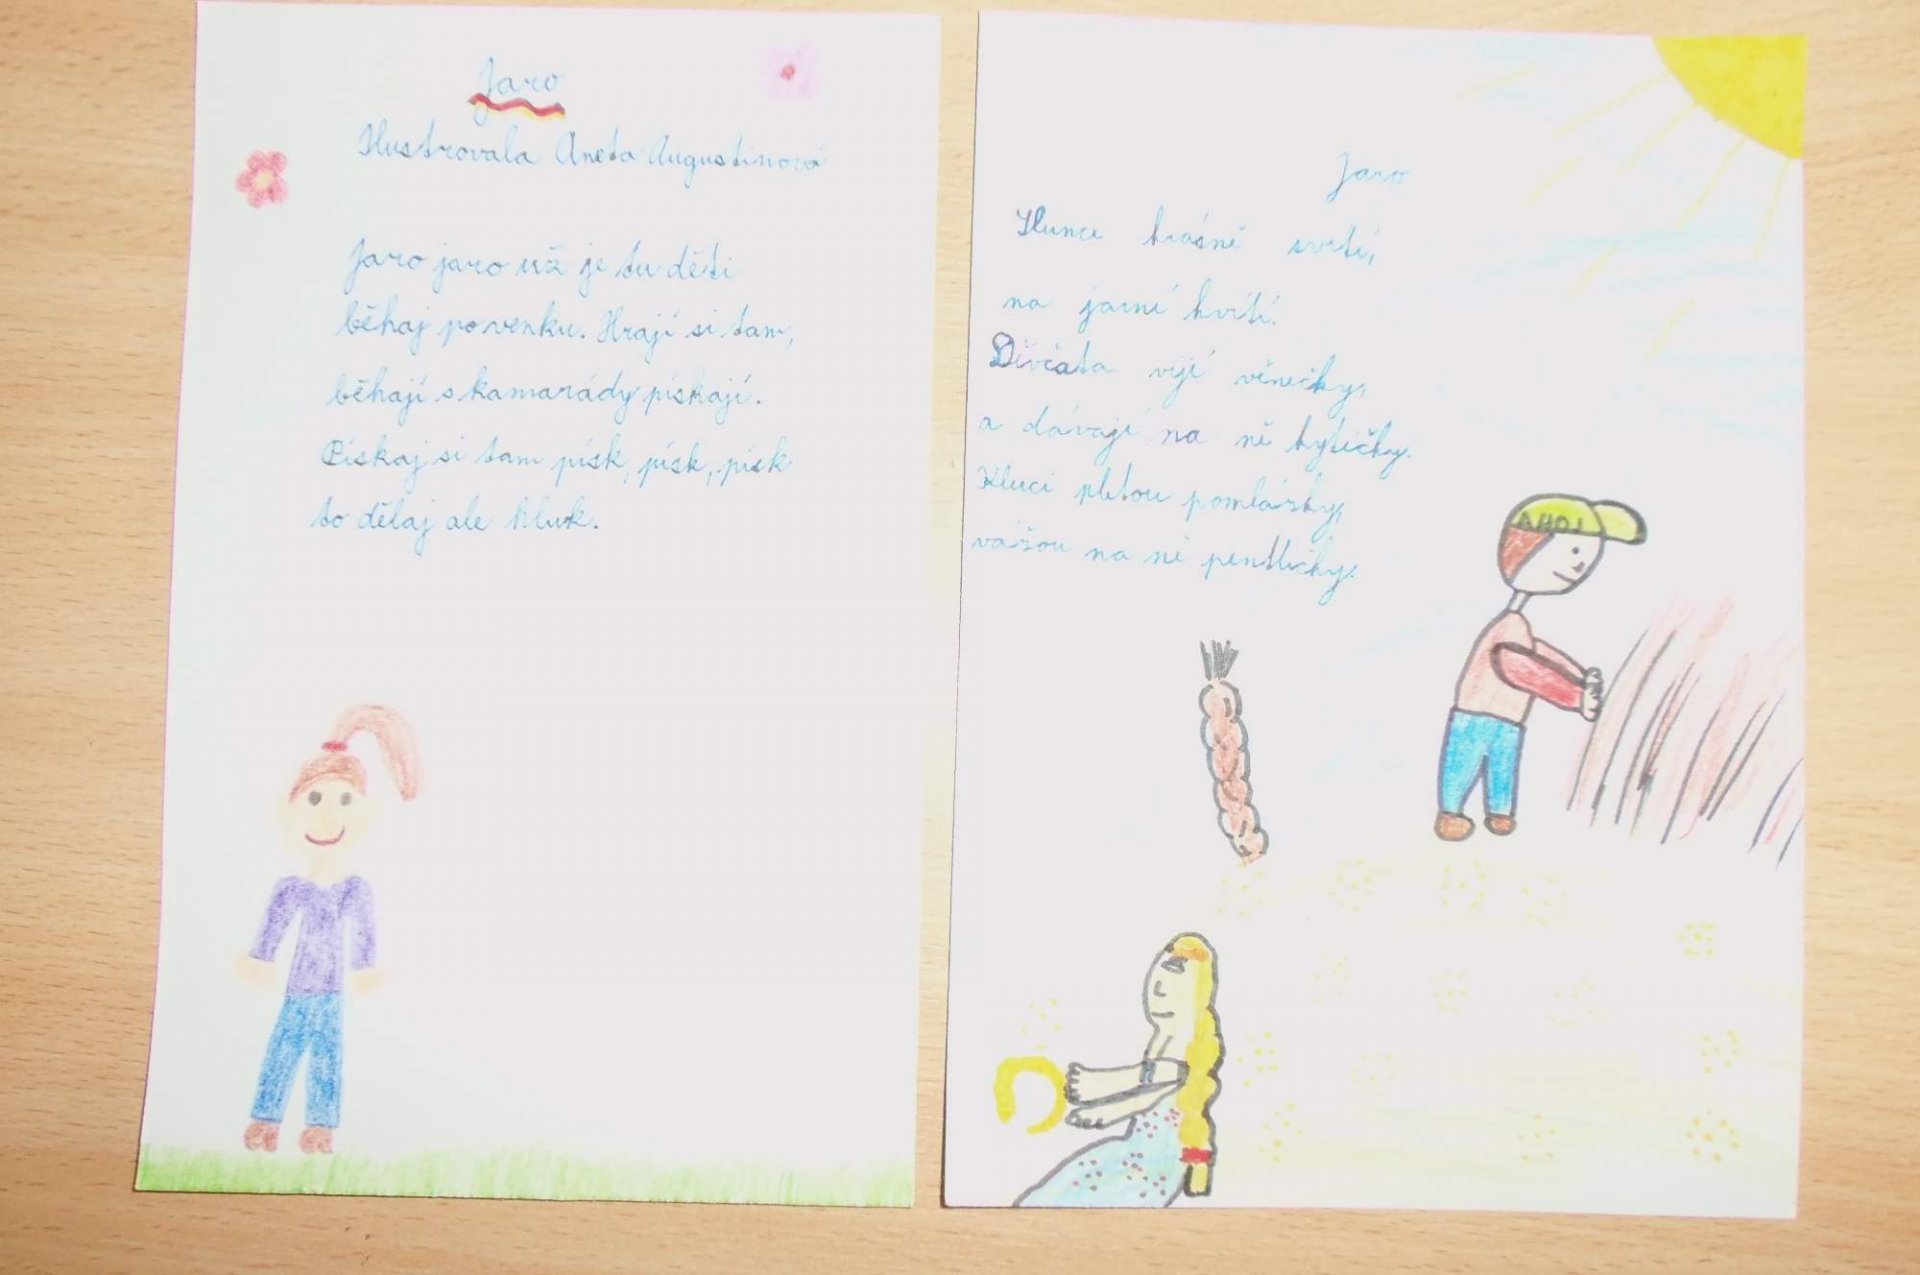 Jaro
Ilustrovala Aneta Augustinová
Jaro jaro už je tu děti
běhaj po venku. Hrají si tam,
běhají s kamarády pískají.
Pískaj si tam písk, písk, písk
to dělaj ale hluk.
Jaro
Slunce krásně svítí,
na jarní kvítí.
Děvčata vijí věnečky,
a dávají na ně kytičky.
Kluci pletou pomlázky,
vážou na ně pentličky.
AHOJ